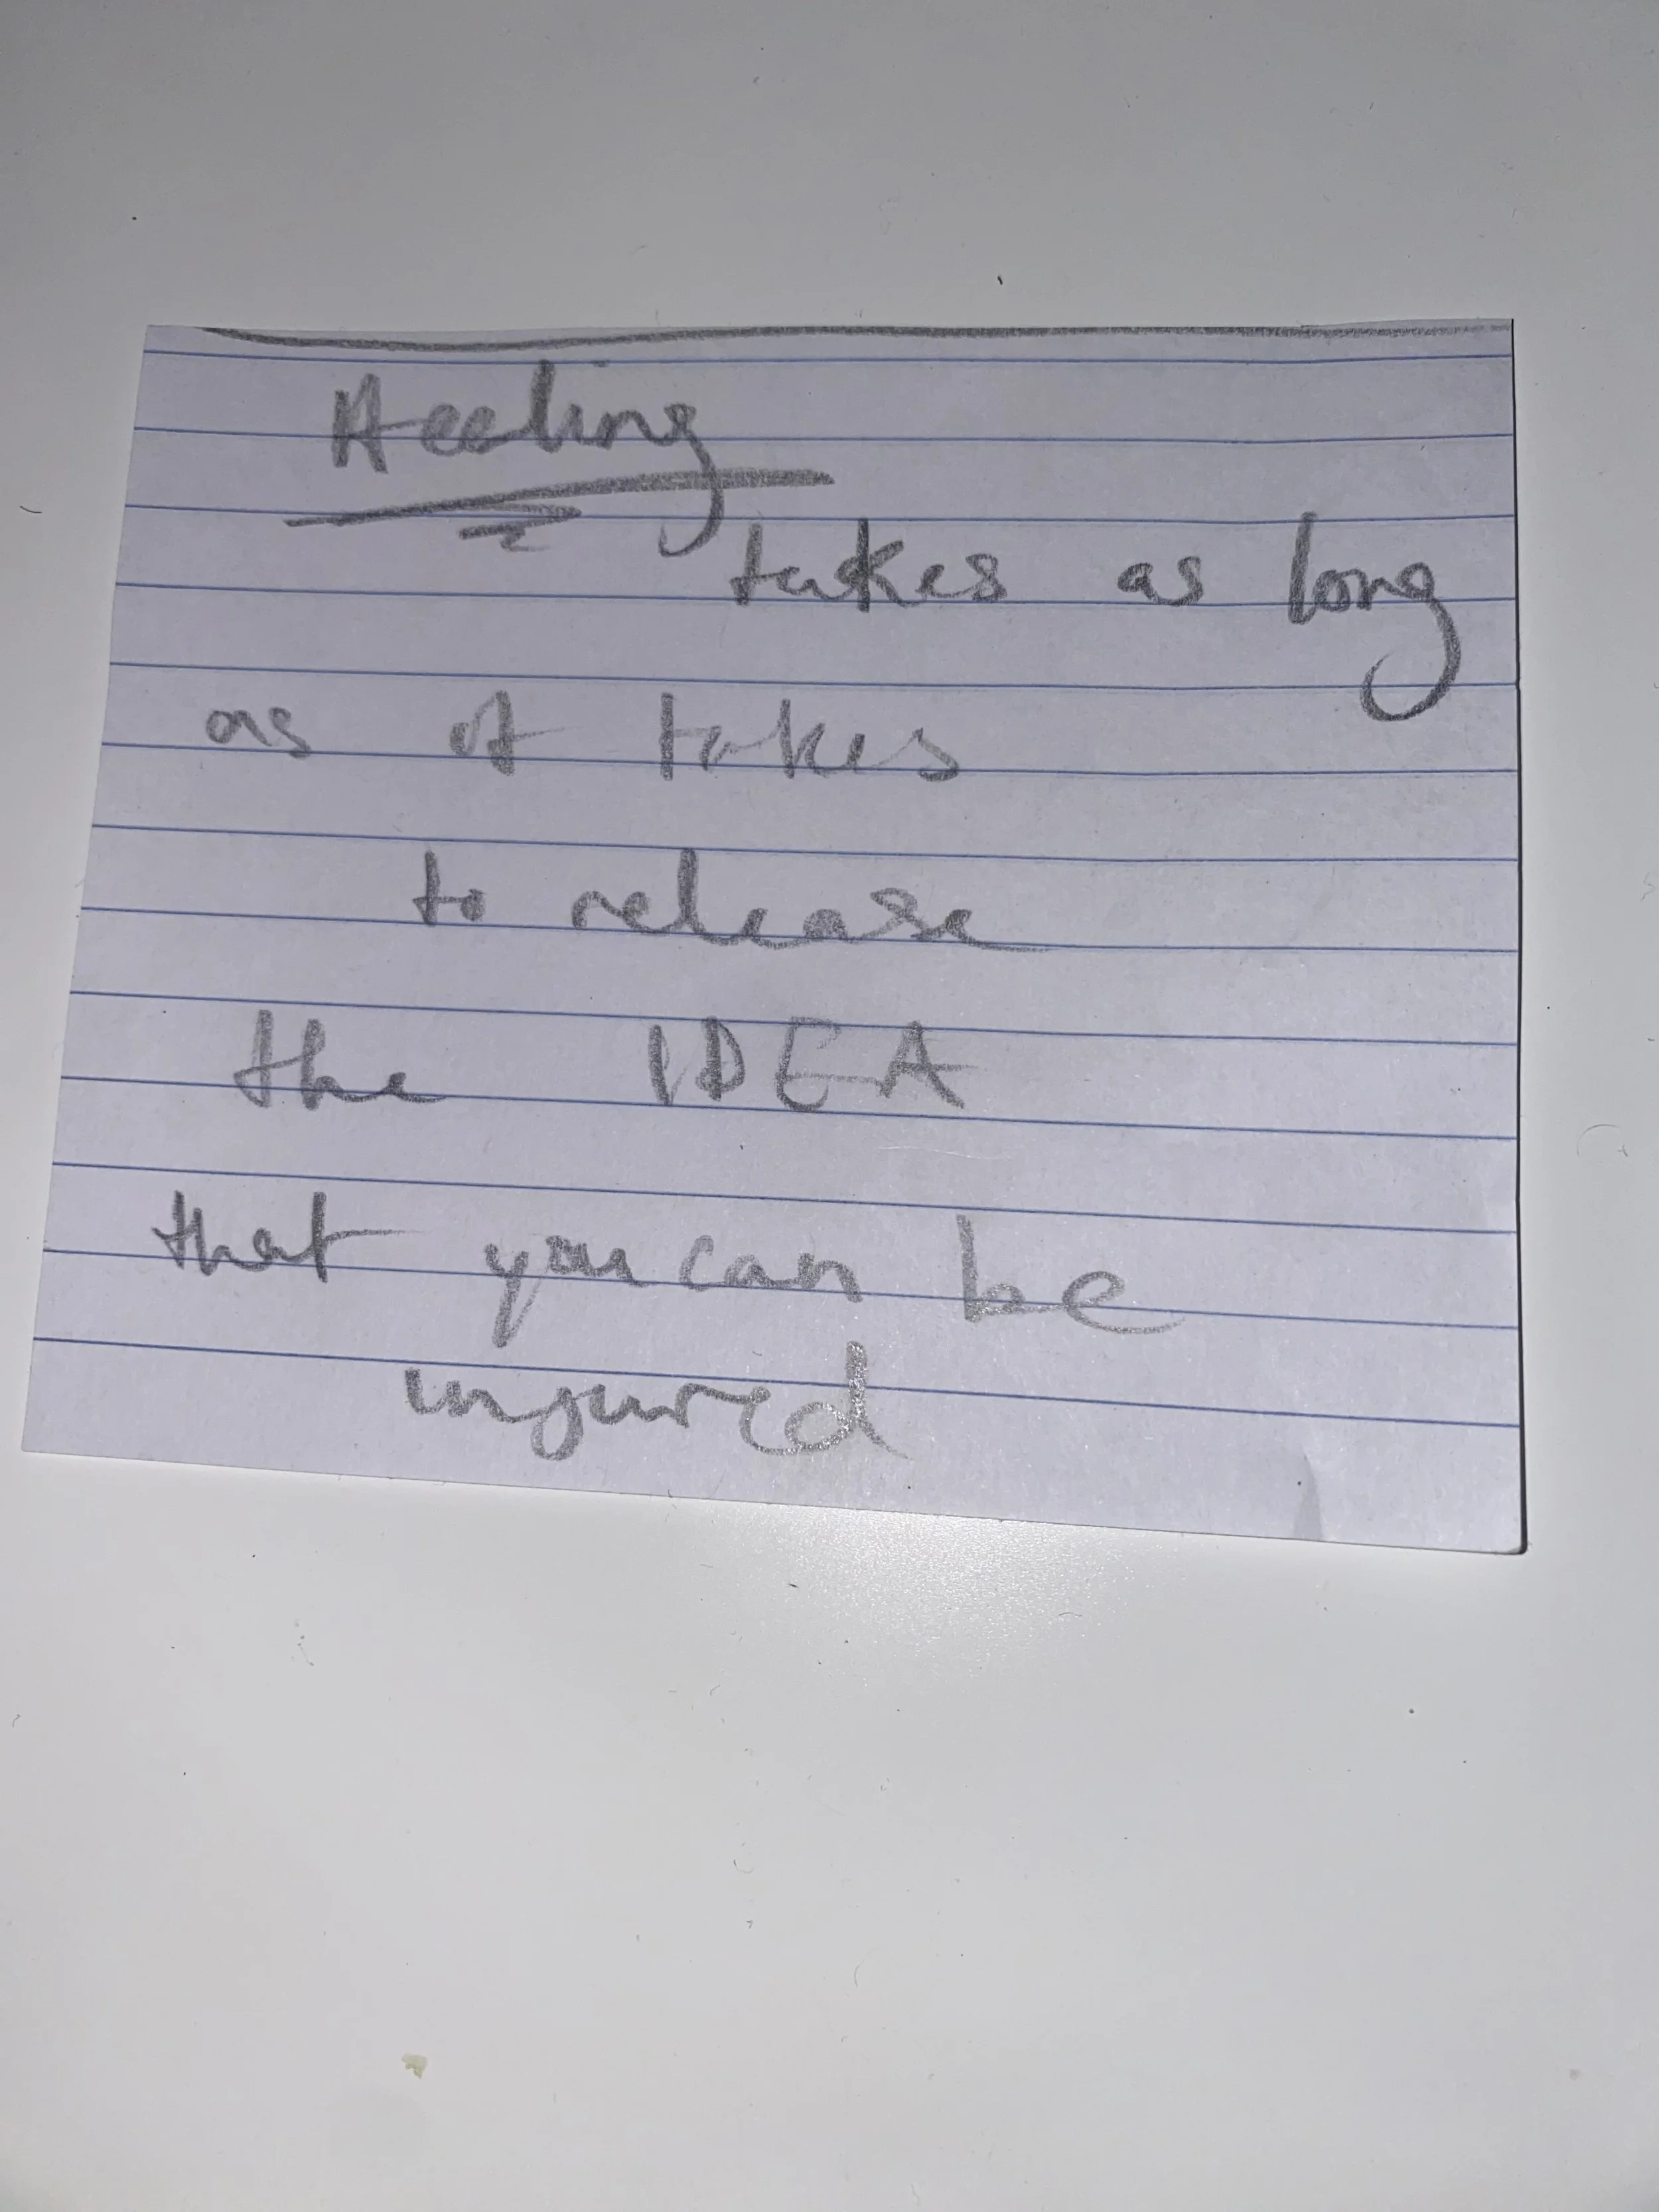 Healing
takes as long
as it takes
to release
the IDEA
that you can be
injured